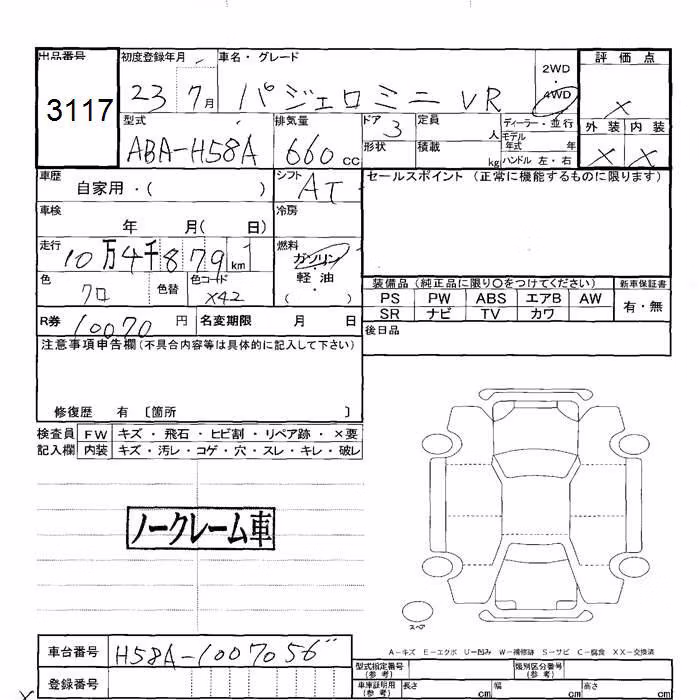 出品番号
3117
初度登録年月
23 7月
車名・グレード
パジェロミニ VR
2WD
4WD
評価点
X
外装 内装
X X
型式
ABA-H58A
排気量
660cc
ドア 3
形状
定員 人
積載 kg
ディーラー・並行
モデル年式 年
ハンドル 左・右
車歴
自家用・( )
シフト
AT
セールスポイント (正常に機能するものに限ります)
車検
年 月( 日)
冷房
走行
10万4千879km
燃料
ガソリン
軽油
( )
色
クロ
色替
色コード
X42
装備品 (純正品に限り〇をつけてください)
PS PW ABS エアB AW
SR ナビ TV カワ
新車保証書
有・無
R券 10070円
名変期限 月 日
後日品
注意事項申告欄(不具合内容等は具体的に記入して下さい)
修復歴 有 〔箇所 〕
検査員記入欄
FW キズ・飛石・ヒビ割・リペア跡・×要
内装 キズ・汚レ・コゲ・穴・スレ・キレ・破レ
ノークレーム車
スペア
A-キズ E-エクボ U-凹み W-補修跡 S-サビ C-腐食 XX-交換済
車台番号 H58A-1007056"
登録番号
型式指定番号(参考)
類別区分番号(参考)
車庫証明用(参考) 長さ cm 幅 cm 高さ cm